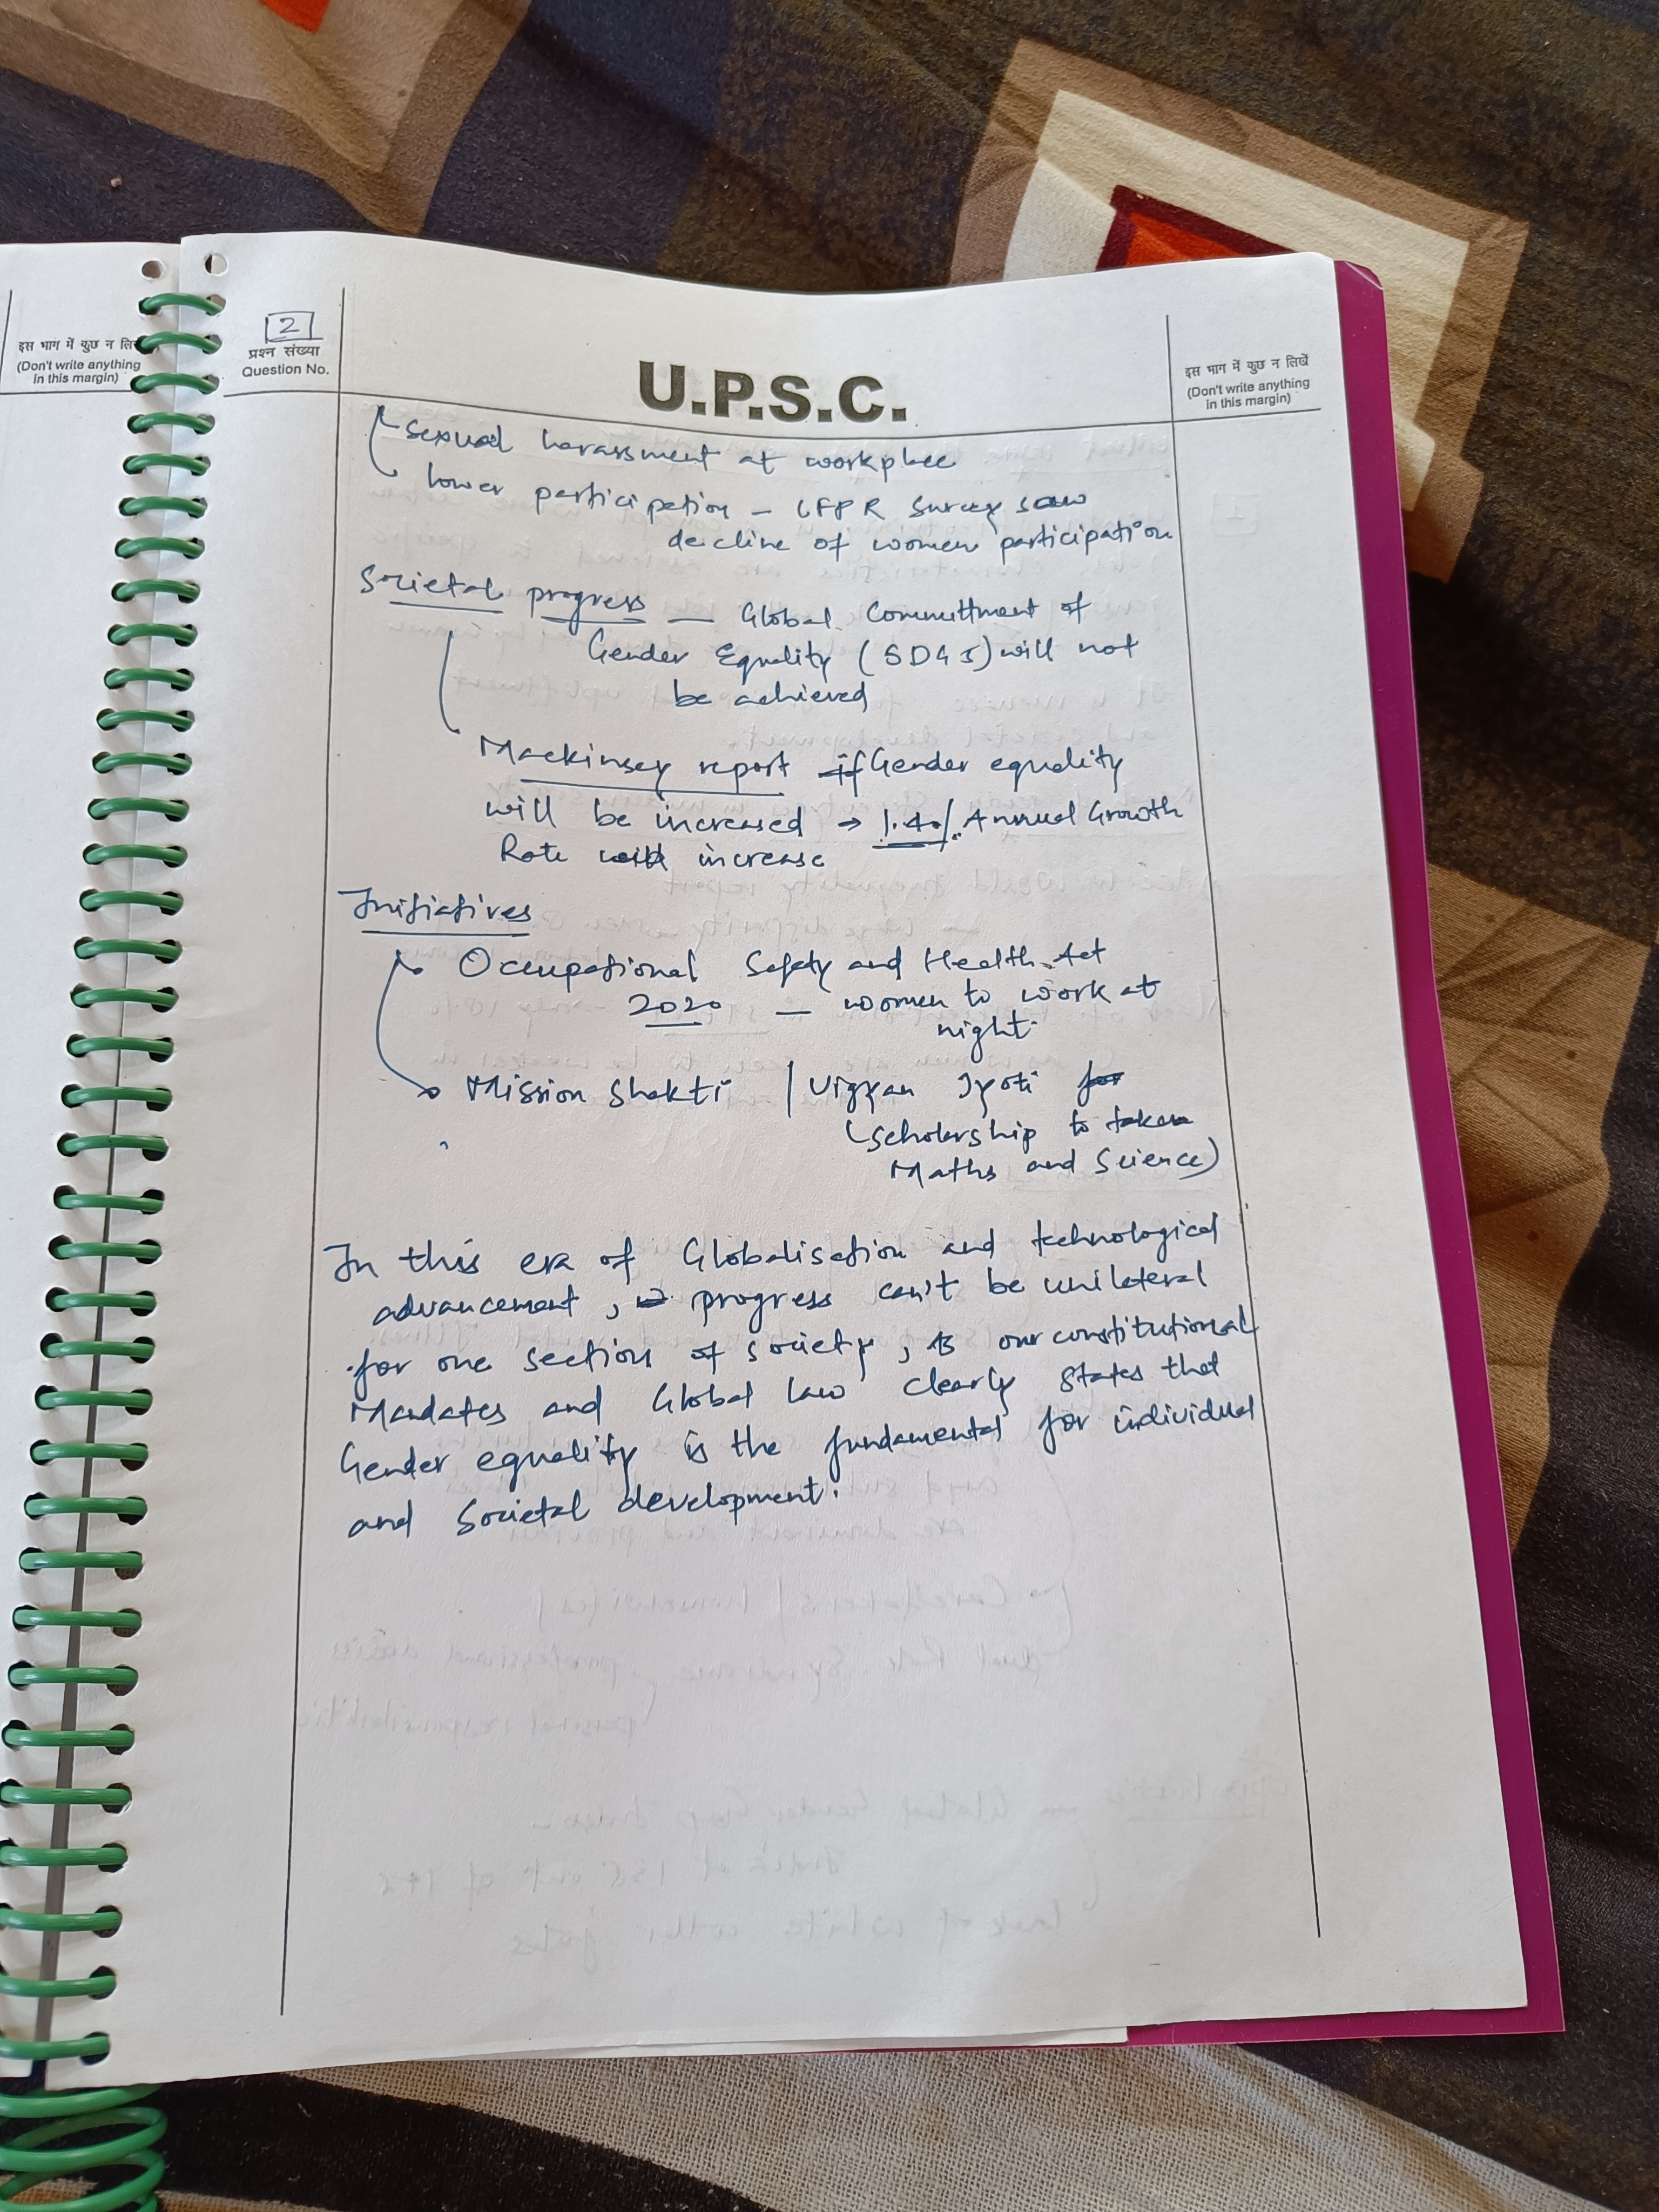 2
प्रश्न संख्या
Question No.
U.P.S.C.
इस भाग में कुछ न लिखें
(Don't write anything
in this margin)
इस भाग में कुछ न लि
(Don't write anything
in this margin)
Sexual harassment at workplace
lower participation – LFPR Survey saw
decline of women participation
Societal progress — Global Committment of
Gender Equality (SDGs) will not
be achieved
Mackinsey report if Gender equality
will be increased → 1.4% Annual Growth
Rate will increase
Initiatives
Occupational Safety and Health Act
2020 — women to work at
night
Mission Shakti / Vigyan Jyoti for
(scholarship to taken
Maths and Science)
In this era of Globalisation and technological
advancement, progress can't be unilateral
for one section of society, our constitutional
Mandates and Global law clearly states that
Gender equality is the fundamental for individual
and Societal development.